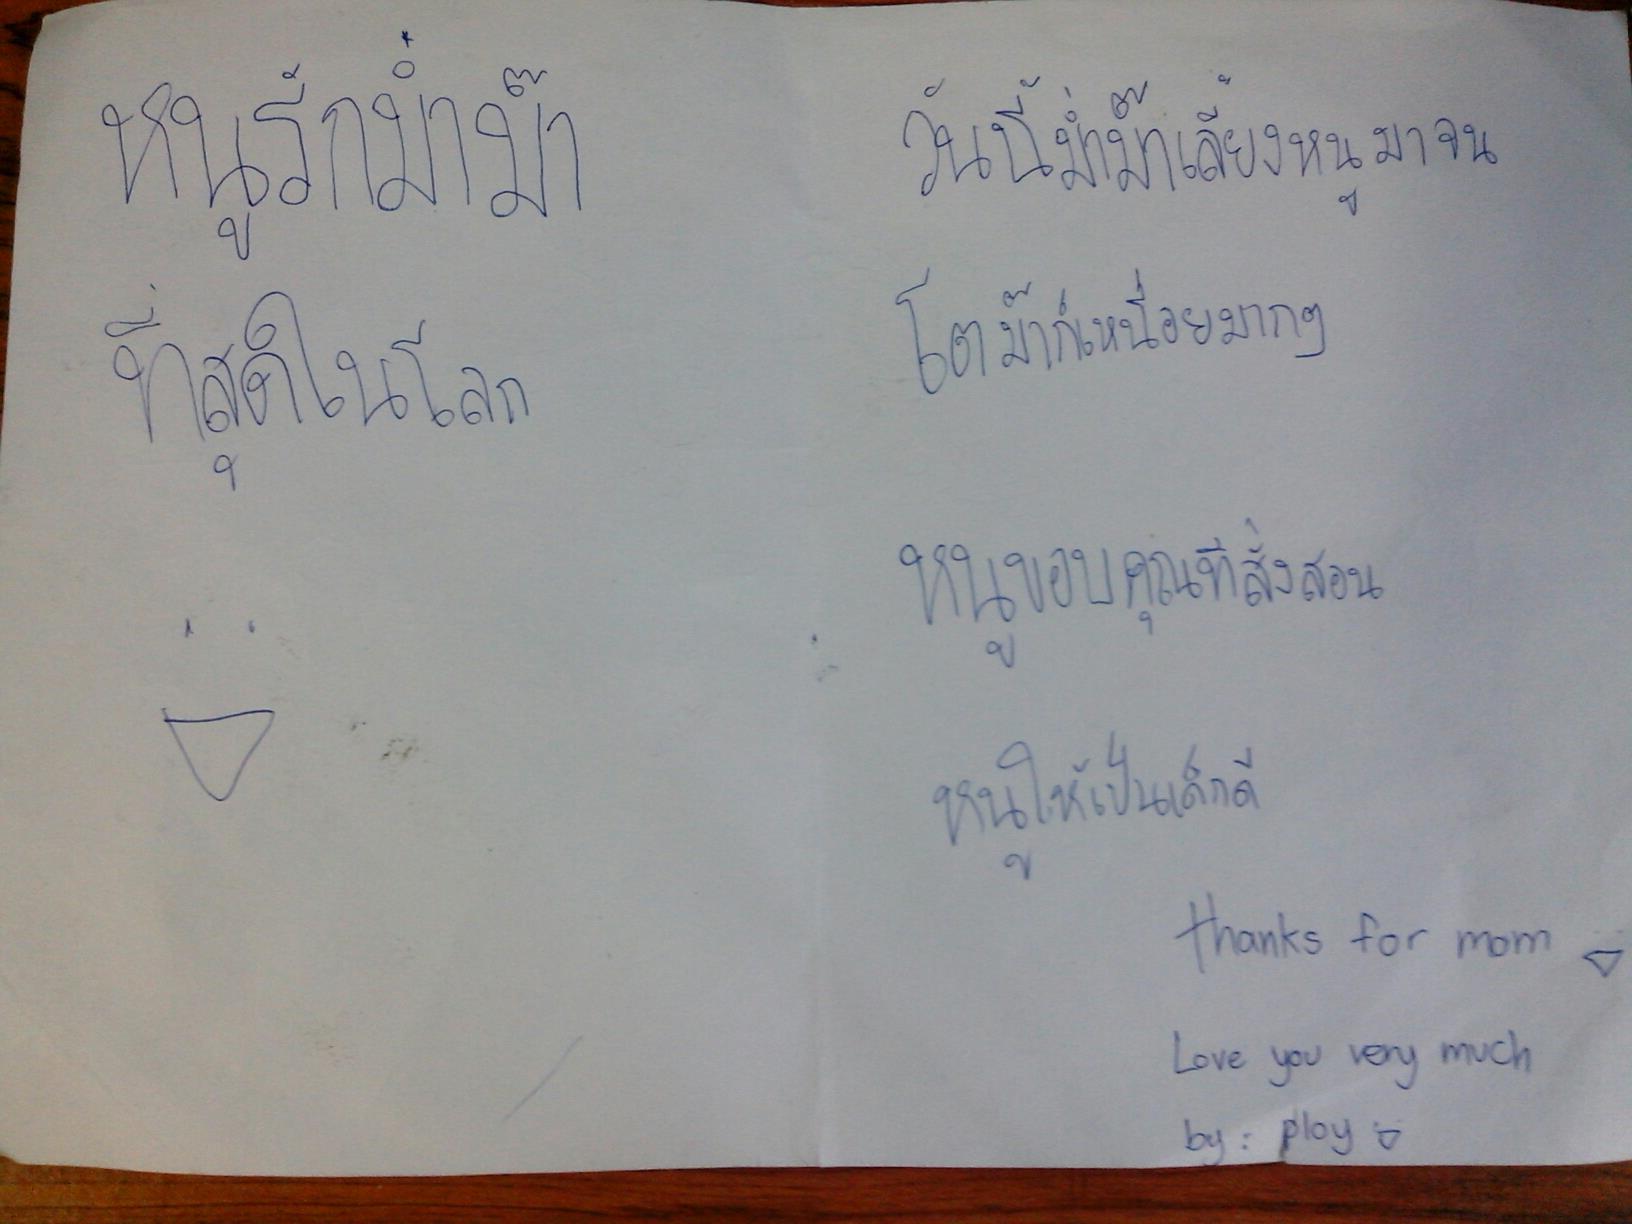 หนูรักม่ำม๊า
ที่สุดในโลก
วันนี้ม่ำม๊าเลี้ยงหนูมาจน
โตม๊าก็เหนื่อยมากๆ
หนูขอบคุณที่สั่งสอน
หนูให้เป็นเด็กดี
thanks for mom
Love you very much
by: ploy